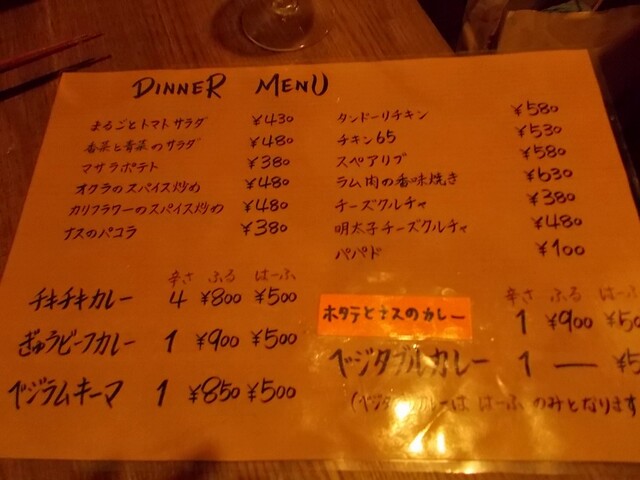 DINNER MENU
まるごとトマトサラダ ¥430
香菜と青菜のサラダ ¥480
マサラポテト ¥380
オクラのスパイス炒め ¥480
カリフラワーのスパイス炒め ¥480
ナスのパコラ ¥380
タンドーリチキン ¥580
チキン65 ¥530
スペアリブ ¥580
ラム肉の香味焼き ¥630
チーズクルチャ ¥380
明太子チーズクルチャ ¥480
パパド ¥100
辛さ ふる はーふ
チキチキカレー 4 ¥800 ¥500
ぎゅうビーフカレー 1 ¥900 ¥500
ベジラムキーマ 1 ¥850 ¥500
辛さ ふる
ホタテとナスのカレー 1 ¥900
ベジタブルカレー 1 ー
カレーは はーふ のみとなります